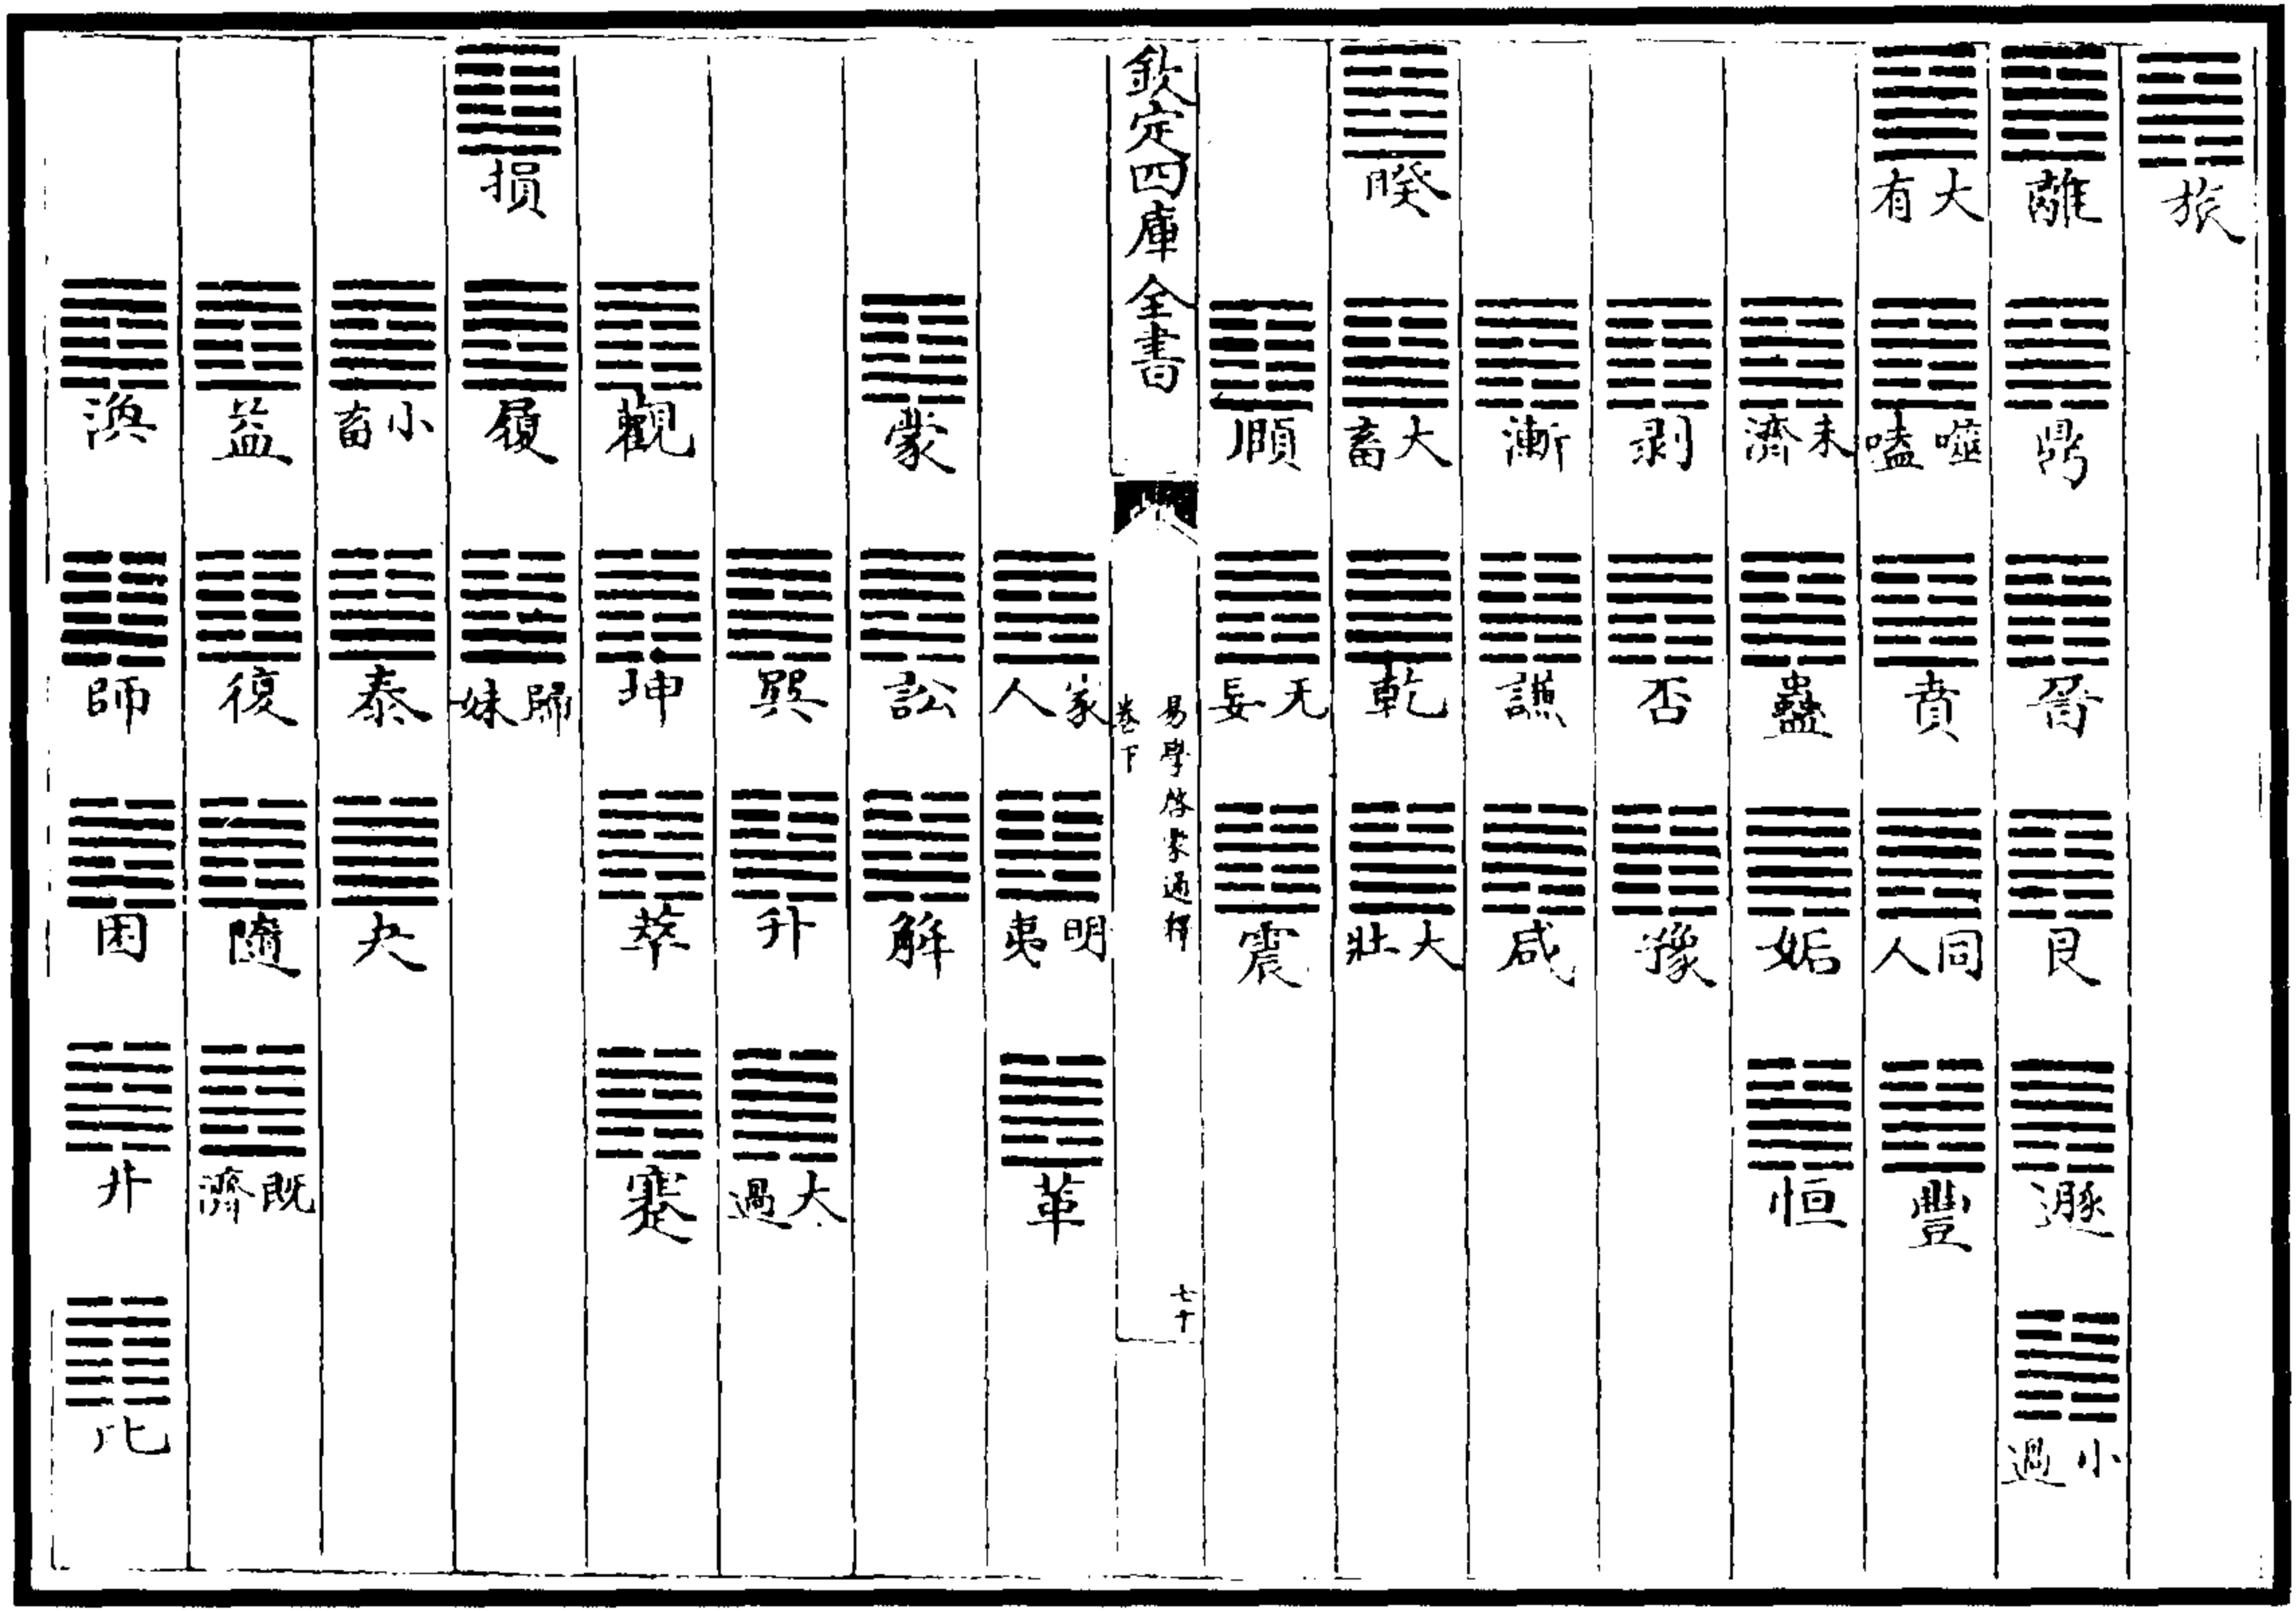 旅
離
鼎
晉
艮
遯
小過
大有
噬嗑
賁
同人
豐
未濟
蠱
姤
恒
剥
否
豫
漸
謙
咸
睽
大畜
乾
大壯
頤
无妄
震
欽定四庫全書
易學啓蒙通釋
卷下
七十
家人
明夷
革
蒙
訟
解
巽
升
大過
觀
坤
萃
蹇
損
履
歸妹
小畜
泰
夬
益
復
隨
既濟
渙
師
困
井
比